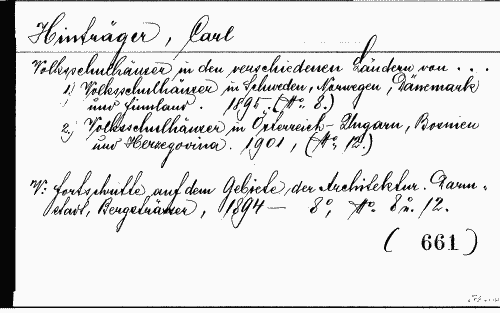 Hinträger, Carl
Volksschulhäuser in den verschiedenen Ländern von . . .
1) Volksschulhäuser in Schweden, Norwegen, Dänemark
und Finnland. 1895. (No. 8.)
2) Volksschulhäuser in Österreich-Ungarn, Bosnien
und Herzegovina. 1901, (No. 12.)
W: Fortschritte auf dem Gebiete der Architektur. Darm-
stadt, Bergsträsser, 1894 — 8°, No. 8 u. 12.
( 661 )